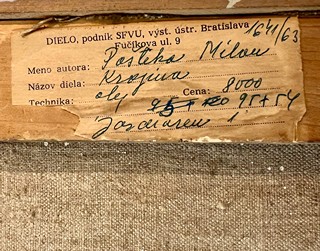 DIELO, podnik SFVU, výst. ústr. Bratislava
Fučíkova ul. 9
1641/63
Meno autora: Pasteka Milan
Názov diela: Krajina
Technika: olej Cena: 8000
95 x 54
1.